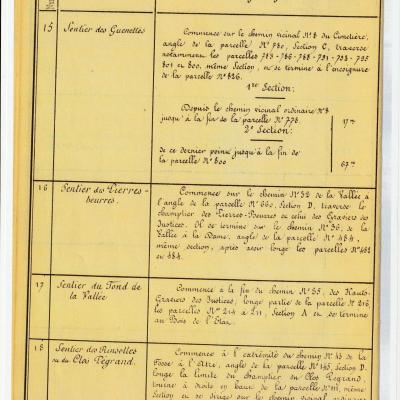 15 Sentier des Guenettes
Commence sur le chemin vicinal N° 8 du Cimetière,
angle de la parcelle N° 780, Section C, traverse
notamment les parcelles 783 - 786 - 788 - 791 - 793 - 795
801 et 800, même Section, et se termine à l'encoignure
de la parcelle N° 826.
1re Section:
Depuis le chemin vicinal ordinaire N° 8
jusqu'à la fin de la parcelle N° 778.
2e Section:
de ce dernier point jusqu'à la fin de
la parcelle N° 800
16 Sentier des Pierres-
beurres.
Commence sur le chemin N° 32 de la Vallée à
l'angle de la parcelle N° 660, Section D, traverse le
champtier des Pierres-Beurres et celui des Graviers des
Justices. Il se termine sur le chemin N° 36, de la
Vallée à la Dame, angle de la parcelle N° 484,
même section, après avoir longé les parcelles N° 482
et 484.
17 Sentier du Fond de
la Vallée
Commence à la fin du chemin N° 35, des Hauts-
Graviers des Justices, longe partie de la parcelle N° 216,
les parcelles N° 214 à 211, Section A et se termine
au Bois de l'Etat.
18 Sentier des
ou du Clos Pégrand.
Commence à l'extrémité du chemin N° 45 de la
Fosse à l'Artre, angle de la parcelle N° 145, Section D.
longe la limite du champtier du Clos Pégrand,
tourne à droite en haut de la parcelle N° 117, même
Section et se dirige sur le chemin vicinal ordinaire